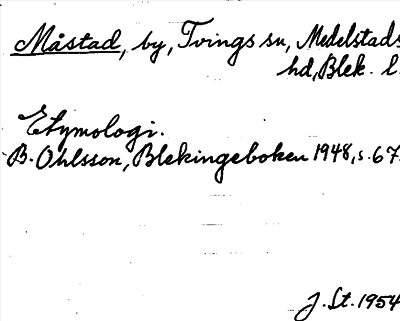 Måstad, by, Tvings sn, Medelstads
hd, Blek. l.
Etymologi.
B. Ohlsson, Blekingeboken 1948, s. 67.
J. St. 1954